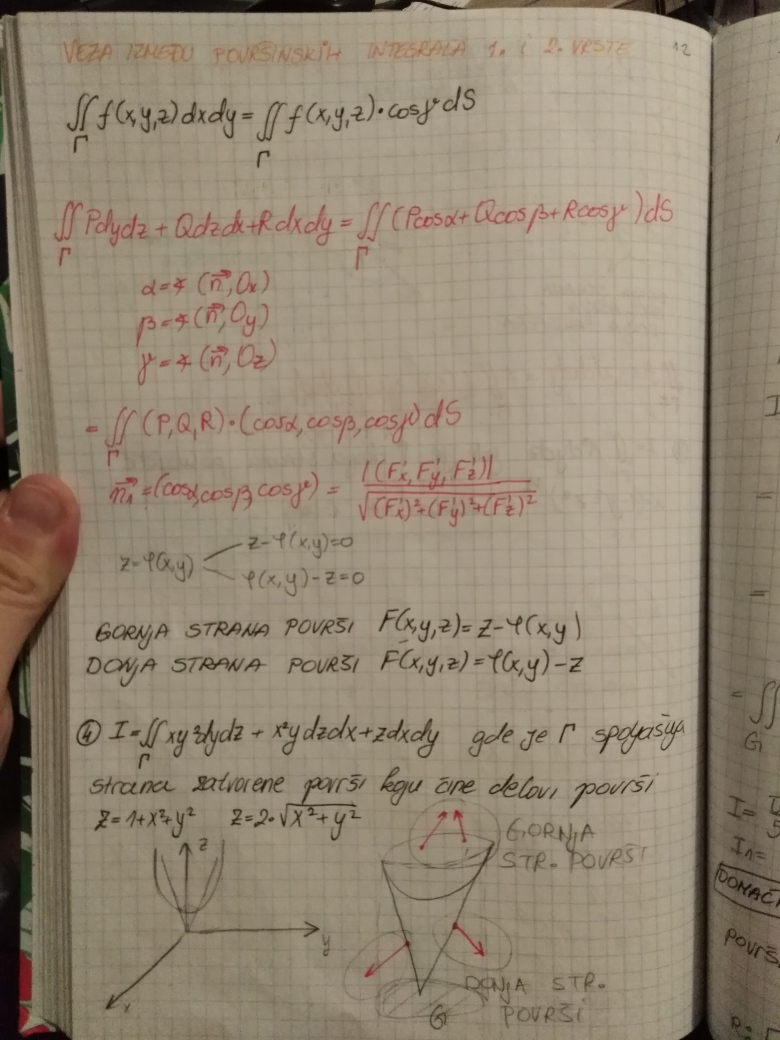 VEZA IZMEĐU POVRŠINSKIH INTEGRALA 1. i 2. VRSTE 12
∬_Γ f(x,y,z)dxdy = ∬_Γ f(x,y,z)·cosγ dS
∬_Γ Pdydz + Qdzdx + Rdxdy = ∬_Γ (Pcosα + Qcosβ + Rcosγ)dS
α = ∢(n⃗, Ox)
β = ∢(n⃗, Oy)
γ = ∢(n⃗, Oz)
= ∬_Γ (P,Q,R)·(cosα, cosβ, cosγ)dS
n⃗₁ = (cosα, cosβ, cosγ) = |(F'x, F'y, F'z)| / √((F'x)²+(F'y)²+(F'z)²)
z-φ(x,y)=0
z=φ(x,y)
φ(x,y)-z=0
GORNJA STRANA POVRŠI F(x,y,z)=z-φ(x,y)
DONJA STRANA POVRŠI F(x,y,z)=φ(x,y)-z
④ I=∬_Γ xy²dydz + x²ydzdx+zdxdy gde je Γ spoljašnja
strana zatvorene površi koju čine delovi površi
z=1+x²+y² z=2·√(x²+y²)
GORNJA
STR. POVRŠI
z
y
x
DONJA STR.
POVRŠI
G
I
=
=
= ∬
G
I=
I₁=
DOMAĆ
POVRŠ